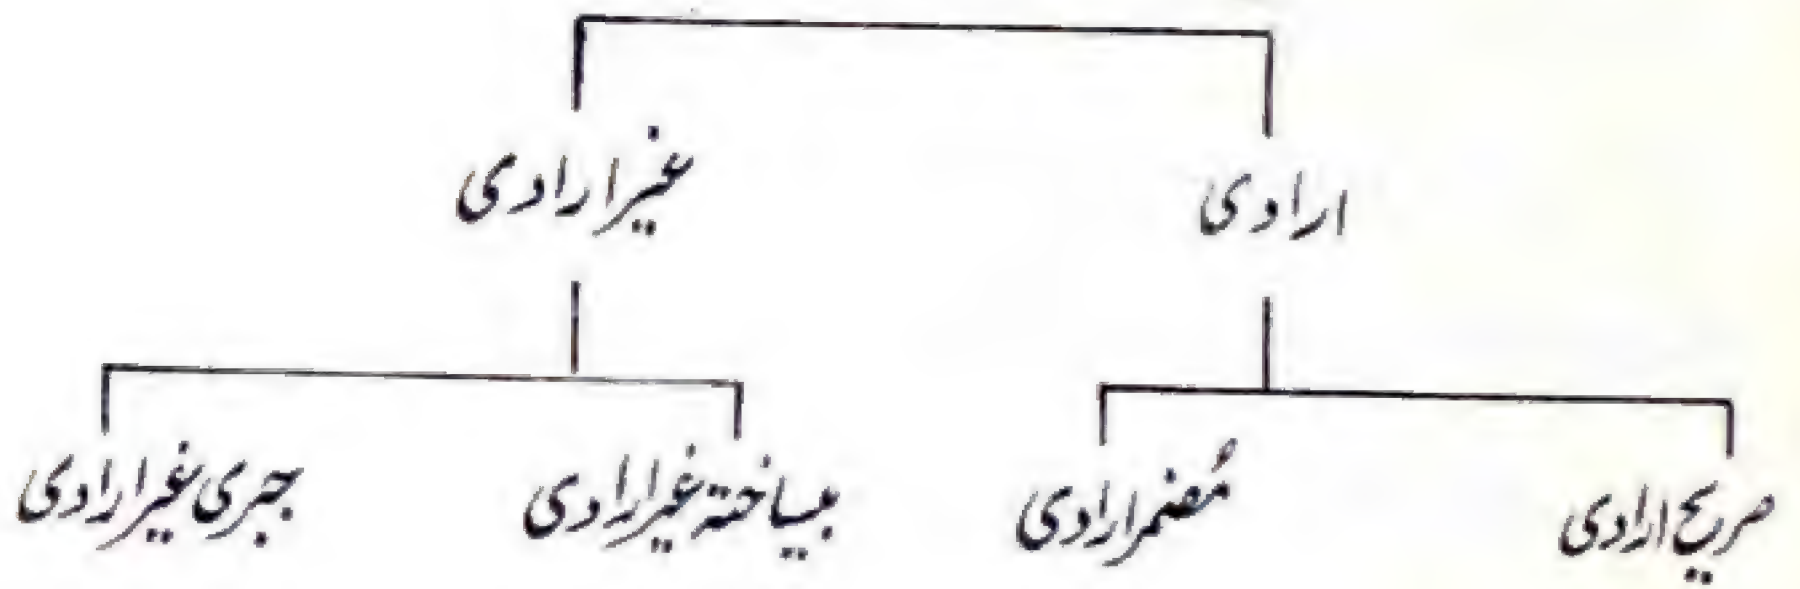 ارادی غیرارادی
صریح ارادی مُضمر ارادی بیساختہ غیرارادی جبری غیرارادی